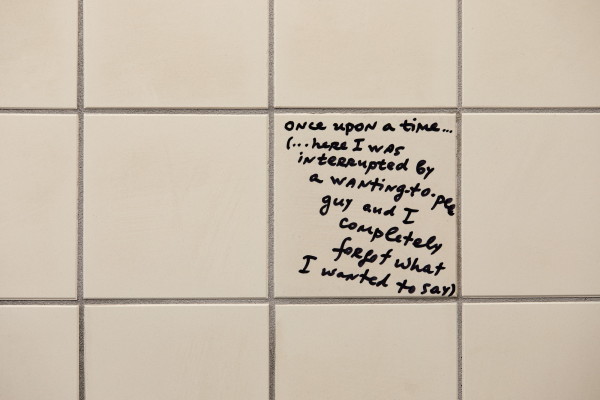 once upon a time...
(...here I was
interrupted by
a wanting-to-pee
guy and I
completely
forgot what
I wanted to say)